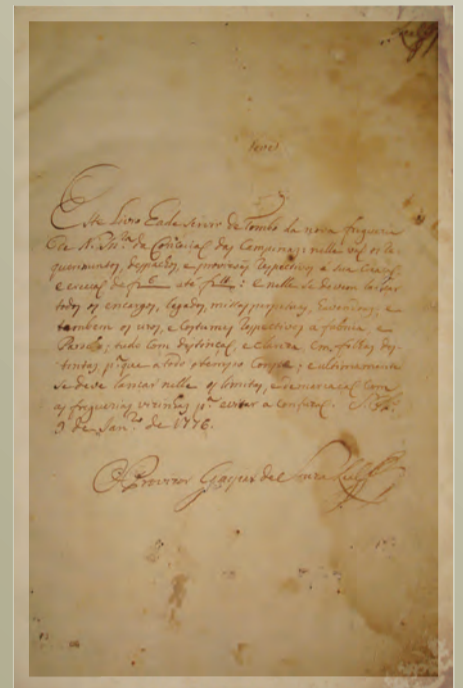 Este Livro hade servir de Tombo da nova freguezia
de N. Snr.ª da Conceiçaõ das Campinas: nelle vaõ os re-
querimentos, despachos, e provisoẽs respectivos a sua
e de f. até f. : e nelle se devem lançar
todos os encargos, legados, missas perpetuas, e
tambem os uzos, e Costumes respectivos a fabrica, e
Parocho; tudo com distinçaõ, e clareza, em folhas dis-
tintas, p.ª que a todo o tempo conste; e ultimamente
se deve lançar nelle os limites, e demarcaçaõ com
as freguezias vizinhas p.ª evitar a confuzaõ. S. P.lo
9 de Jan.ro de 1776.
O Provizor Gaspar de Souza Leal